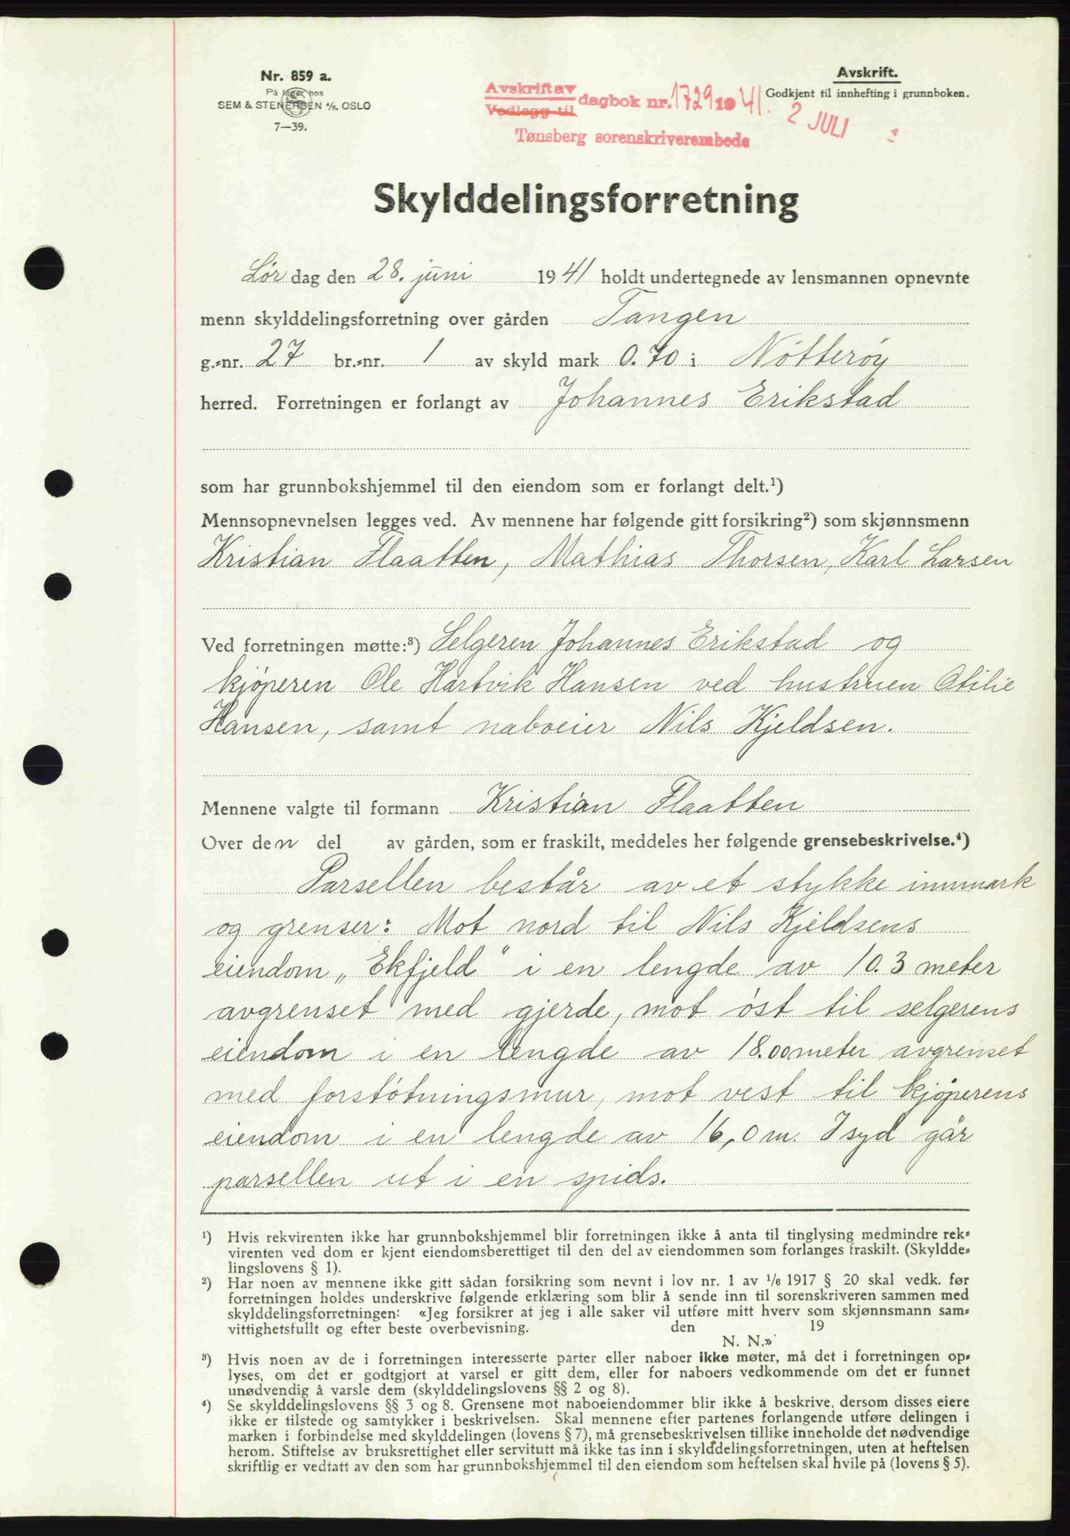 Nr. 859 a.
På lager hos
SEM & STENERSEN A/S, OSLO
7—39.
Avskrift av
Vedlegg til
dagbok nr. 1729 1941.
Tønsberg sorenskriverembede
2 JULI
Avskrift.
Godkjent til innhefting i grunnboken.
Skylddelingsforretning
Lørdag den 28. juni 1941 holdt undertegnede av lensmannen opnevnte
menn skylddelingsforretning over gården Tangen
g.-nr. 27 br.-nr. 1 av skyld mark 0.70 i Nötteröy
herred. Forretningen er forlangt av Johannes Erikstad
som har grunnbokshjemmel til den eiendom som er forlangt delt.¹)
Mennsopnevnelsen legges ved. Av mennene har følgende gitt forsikring²) som skjønnsmenn
Kristian Flaatten, Mathias Thorsen, Karl Larsen
Ved forretningen møtte:³) Selgeren Johannes Erikstad og
kjöperen Ole Hartvik Hansen ved hustruen Otilie
Hansen, samt naboeier Nils Kjeldsen.
Mennene valgte til formann Kristian Flaatten
Over den del av gården, som er fraskilt, meddeles her følgende grensebeskrivelse.⁴)
Parsellen består av et stykke innmark
og grenser: Mot nord til Nils Kjeldsens
eiendom „Ekfjeld" i en lengde av 10.3 meter
avgrenset med gjerde, mot öst til selgerens
eiendom i en lengde av 18.00 meter avgrenset
med forstötningsmur, mot vest til kjöperens
eiendom i en lengde av 16,0 m. I syd går
parsellen ut i en spids.
¹) Hvis rekvirenten ikke har grunnbokshjemmel blir forretningen ikke å anta til tinglysing medmindre rek-
virenten ved dom er kjent eiendomsberettiget til den del av eiendommen som forlanges fraskilt. (Skyldde-
lingslovens § 1).
²) Har noen av mennene ikke gitt sådan forsikring som nevnt i lov nr. 1 av 1/6 1917 § 20 skal vedk. før
forretningen holdes underskrive følgende erklæring som blir å sende inn til sorenskriveren sammen med
skylddelingsforretningen: «Jeg forsikrer at jeg i alle saker vil utføre mitt hverv som skjønnsmann sam-
vittighetsfullt og efter beste overbevisning. den 19
N. N.»
³) Hvis noen av de i forretningen interesserte parter eller naboer ikke møter, må det i forretningen op-
lyses, om det er godtgjort at varsel er gitt dem, eller for naboers vedkommende om det er funnet
unødvendig å varsle dem (skylddelingslovens §§ 2 og 8).
⁴) Se skylddelingslovens §§ 3 og 8. Grensene mot naboeiendommer blir ikke å beskrive, dersom disses eiere
ikke er tilstede og samtykker i beskrivelsen. Skal mennene efter partenes forlangende utføre delingen i
marken i forbindelse med skylddelingen (lovens § 7), må grensebeskrivelsen tillike inneholde det nødvendige
herom. Stiftelse av bruksrettighet eller servitutt må ikke tas inn i skylddelingsforretningen, uten at heftelsen
skriftlig er vedtatt av den som har grunnbokshjemmel til den eiendom som heftelsen skal hvile på (lovens § 5).